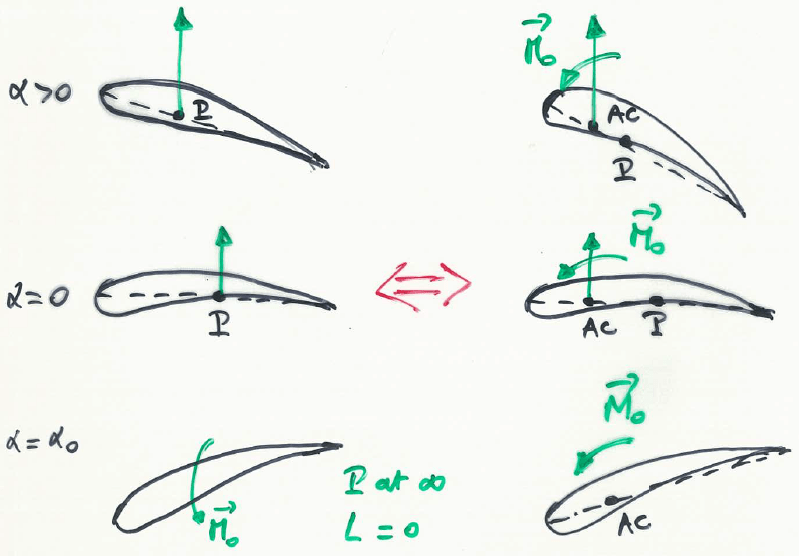 α>0
P
M₀
AC
P
α=0
P
M₀
AC
P
α=α₀
M₀
P at ∞
L=0
M₀
AC